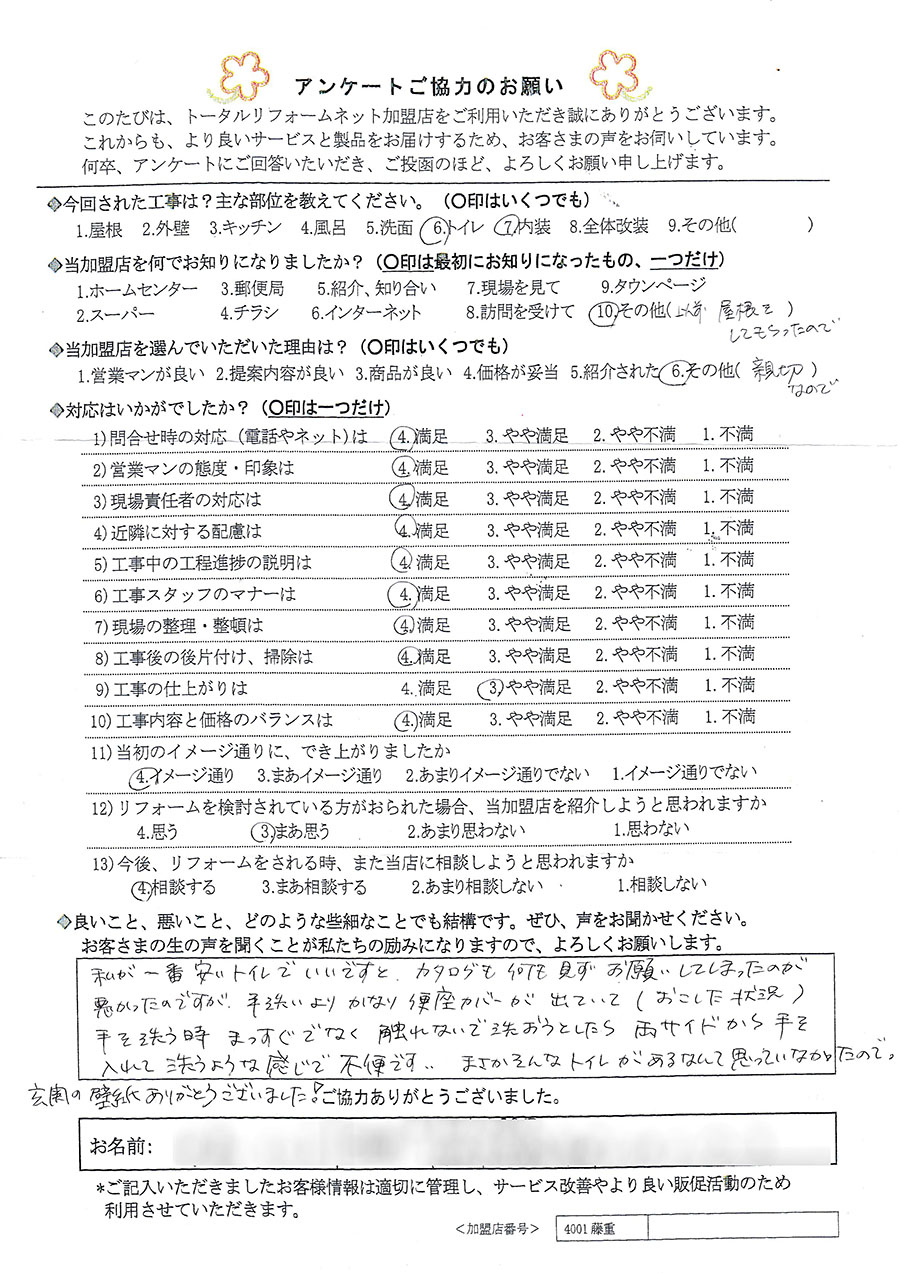 アンケートご協力のお願い
このたびは、トータルリフォームネット加盟店をご利用いただき誠にありがとうございます。
これからも、より良いサービスと製品をお届けするため、お客さまの声をお伺いしています。
何卒、アンケートにご回答いたいだき、ご投函のほど、よろしくお願い申し上げます。
◆今回された工事は？主な部位を教えてください。（○印はいくつでも）
1.屋根 2.外壁 3.キッチン 4.風呂 5.洗面 6.トイレ 7.内装 8.全体改装 9.その他( )
◆当加盟店を何でお知りになりましたか？（○印は最初にお知りになったもの、一つだけ）
1.ホームセンター 3.郵便局 5.紹介、知り合い 7.現場を見て 9.タウンページ
2.スーパー 4.チラシ 6.インターネット 8.訪問を受けて 10.その他(以前 屋根を )
してもらったので
◆当加盟店を選んでいただいた理由は？（○印はいくつでも）
1.営業マンが良い 2.提案内容が良い 3.商品が良い 4.価格が妥当 5.紹介された 6.その他( 親切 )
なので
◆対応はいかがでしたか？（○印は一つだけ）
1)問合せ時の対応（電話やネット）は 4.満足 3.やや満足 2.やや不満 1.不満
2)営業マンの態度・印象は 4.満足 3.やや満足 2.やや不満 1.不満
3)現場責任者の対応は 4.満足 3.やや満足 2.やや不満 1.不満
4)近隣に対する配慮は 4.満足 3.やや満足 2.やや不満 1.不満
5)工事中の工程進捗の説明は 4.満足 3.やや満足 2.やや不満 1.不満
6)工事スタッフのマナーは 4.満足 3.やや満足 2.やや不満 1.不満
7)現場の整理・整頓は 4.満足 3.やや満足 2.やや不満 1.不満
8)工事後の後片付け、掃除は 4.満足 3.やや満足 2.やや不満 1.不満
9)工事の仕上がりは 4.満足 3.やや満足 2.やや不満 1.不満
10)工事内容と価格のバランスは 4.満足 3.やや満足 2.やや不満 1.不満
11)当初のイメージ通りに、でき上がりましたか
4.イメージ通り 3.まあイメージ通り 2.あまりイメージ通りでない 1.イメージ通りでない
12)リフォームを検討されている方がおられた場合、当加盟店を紹介しようと思われますか
4.思う 3.まあ思う 2.あまり思わない 1.思わない
13)今後、リフォームをされる時、また当店に相談しようと思われますか
4.相談する 3.まあ相談する 2.あまり相談しない 1.相談しない
◆良いこと、悪いこと、どのような些細なことでも結構です。ぜひ、声をお聞かせください。
お客さまの生の声を聞くことが私たちの励みになりますので、よろしくお願いします。
私が一番安いトイレでいいですと、カタログも何も見ずお願いしてしまったのが
悪かったのですが、手洗いよりかなり便座カバーが出ていて（おこした状況）
手を洗う時まっすぐでなく触れないで洗おうとしたら両サイドから手を
入れて洗うような感じで不便です．．まさかそんなトイレがあるなんて思っていなかったので。
玄関の壁紙ありがとうございました！ご協力ありがとうございました。
お名前:
*ご記入いただきましたお客様情報は適切に管理し、サービス改善やより良い販促活動のため
利用させていただきます。
＜加盟店番号＞ 4001藤重